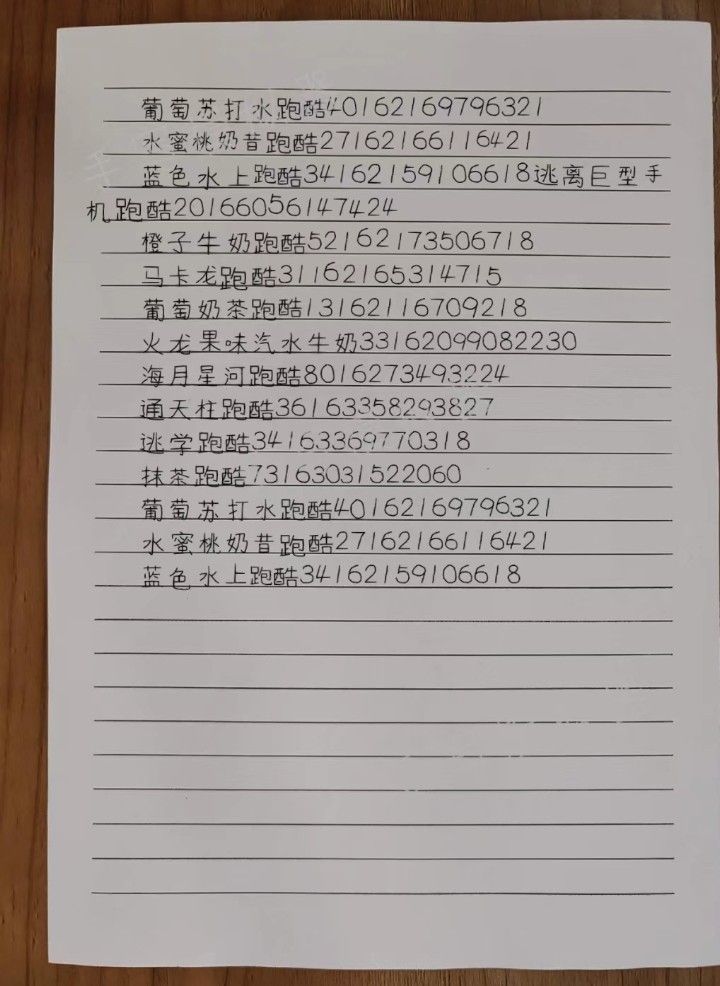 葡萄苏打水跑酷40162169796321
水蜜桃奶昔跑酷27162166116421
蓝色水上跑酷34162159106618逃离巨型手
机跑酷20166056147424
橙子牛奶跑酷52162173506718
马卡龙跑酷31162165314715
葡萄奶茶跑酷13162116709218
火龙果味汽水牛奶33162099082230
海月星河跑酷8016273493224
通天柱跑酷36163358293827
逃学跑酷34163369770318
抹茶跑酷73163031522060
葡萄苏打水跑酷40162169796321
水蜜桃奶昔跑酷27162166116421
蓝色水上跑酷34162159106618